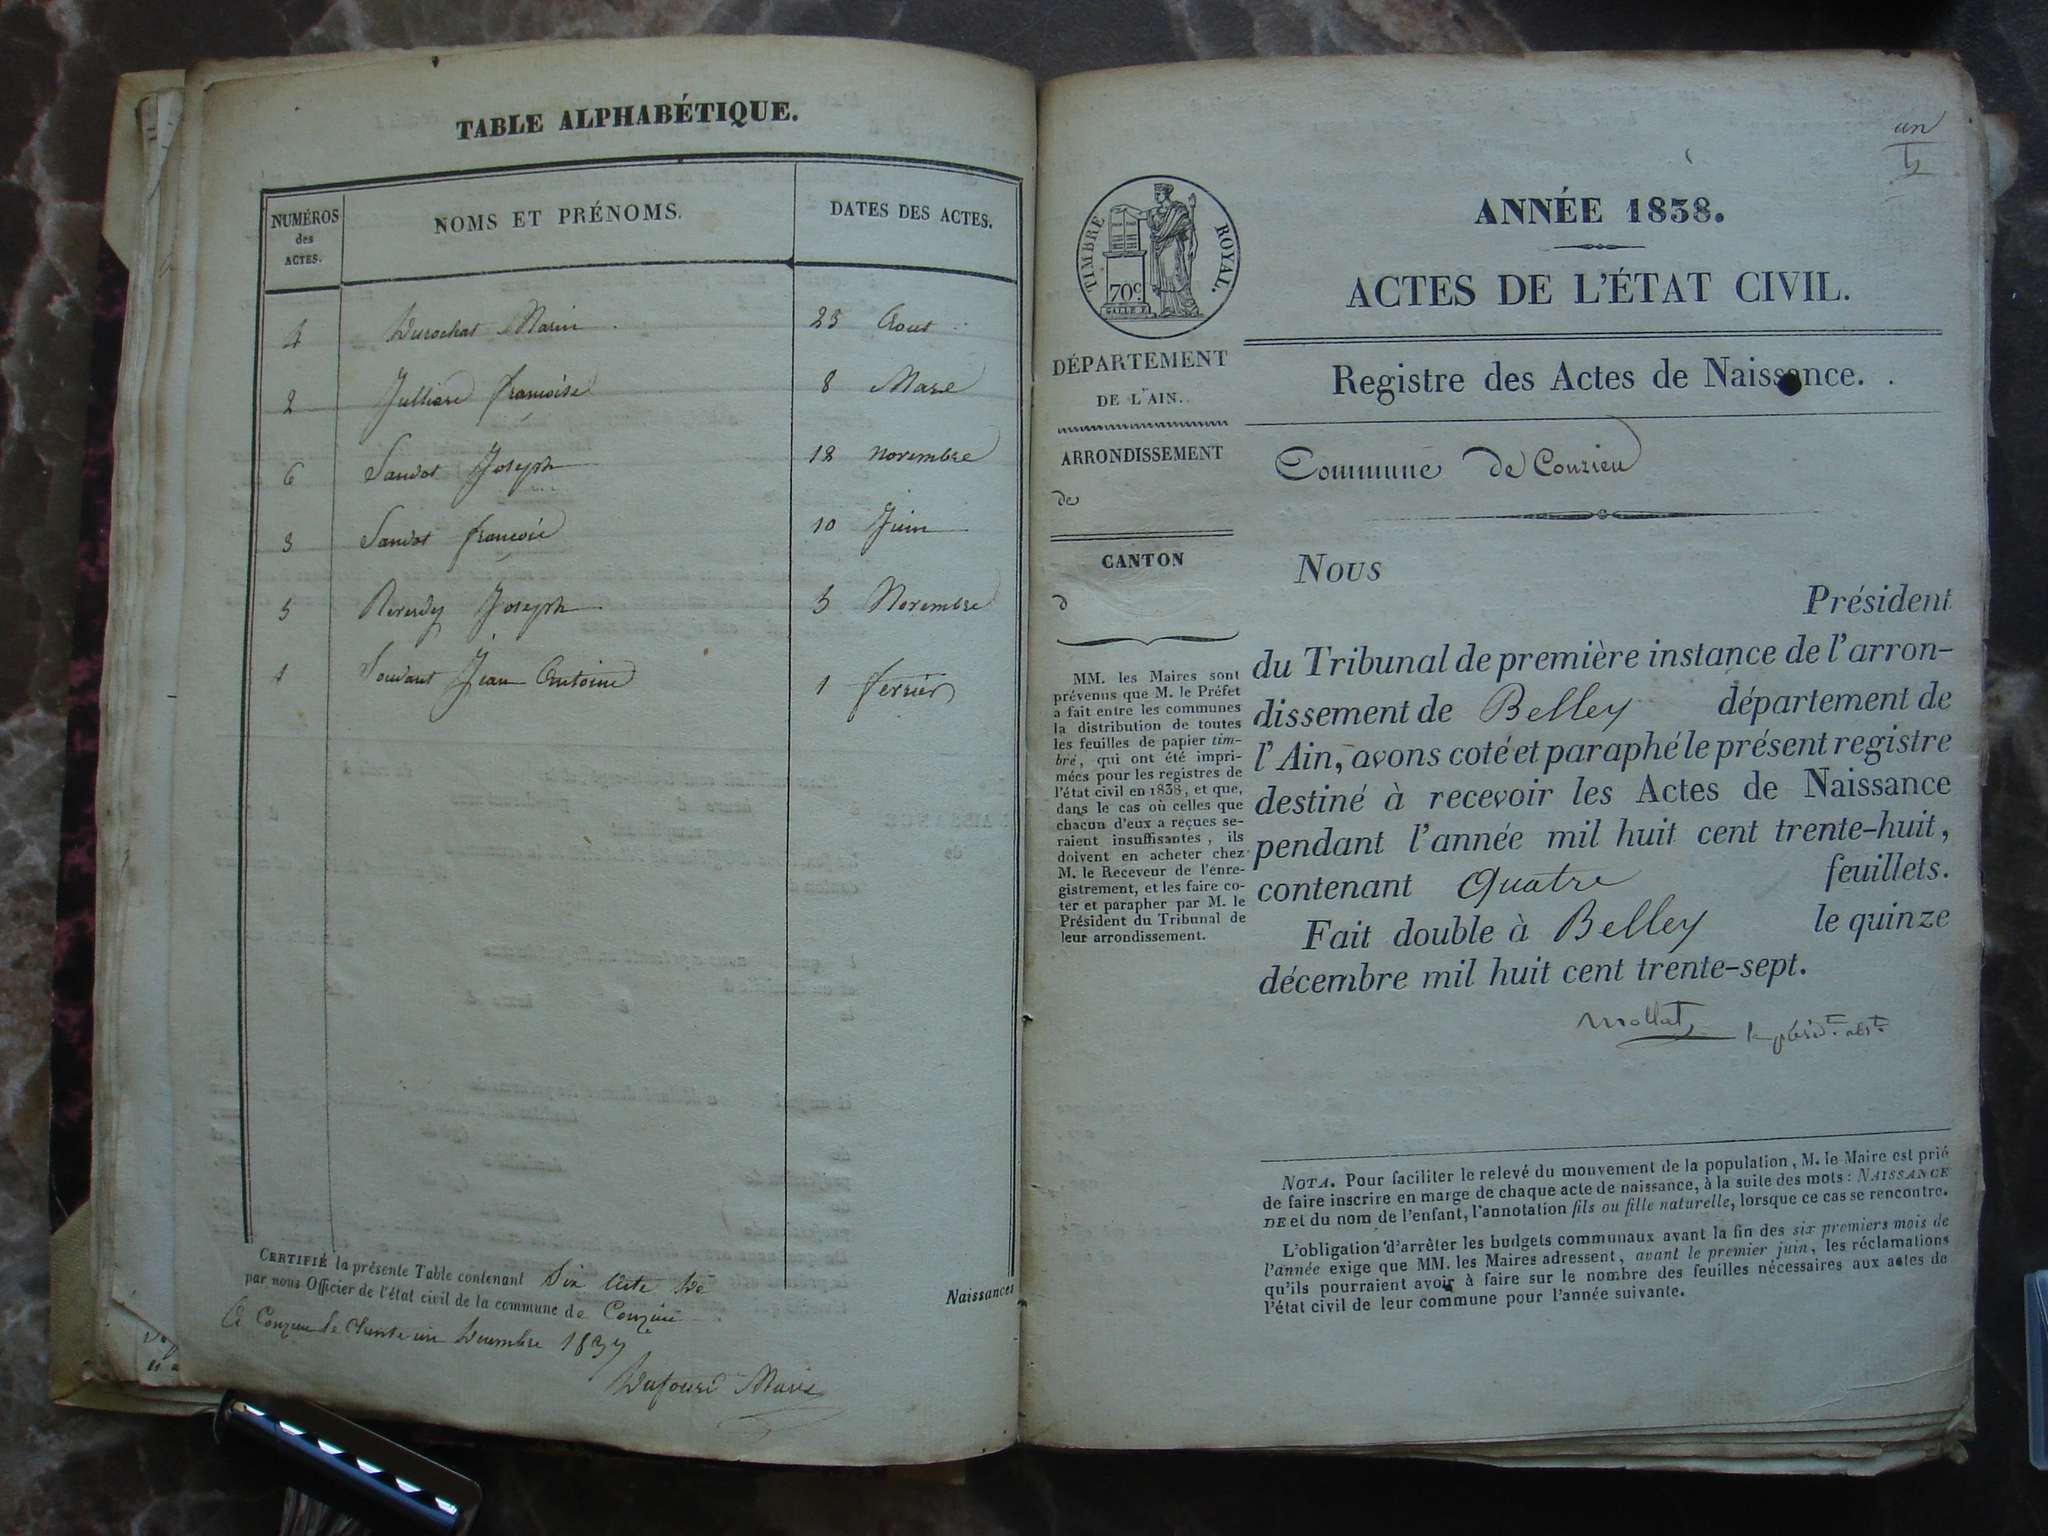 TABLE ALPHABÉTIQUE.
NUMÉROS des ACTES.
NOMS ET PRÉNOMS.
DATES DES ACTES.
4 Durochat Marie 23 Aout
2 Jullien françoise 8 Mars
6 Sandot Joseph 12 novembre
3 Sandot françois 10 Juin
5 Reverdy Joseph 5 Novembre
1 Jean Antoine 1 fevrier
CERTIFIÉ la présente Table contenant Six acte
par nous Officier de l'état civil de la commune de Conzieu
a Conzieu le trente un Decembre 1837
Dufour Maire
Naissances
un
TIMBRE ROYAL.
70c.
DÉPARTEMENT
DE L'AIN.
ARRONDISSEMENT
de
CANTON
d
MM. les Maires sont
prévenus que M. le Préfet
a fait entre les communes
la distribution de toutes
les feuilles de papier tim-
bré, qui ont été impri-
mées pour les registres de
l'état civil en 1838, et que,
dans le cas où celles que
chacun d'eux a reçues se-
raient insuffisantes, ils
doivent en acheter chez
M. le Receveur de l'enre-
gistrement, et les faire co-
ter et parapher par M. le
Président du Tribunal de
leur arrondissement.
ANNÉE 1838.
ACTES DE L'ÉTAT CIVIL.
Registre des Actes de Naissance.
Commune de Conzieu
Nous
Président
du Tribunal de première instance de l'arron-
dissement de Belley département de
l'Ain, avons coté et paraphé le présent registre
destiné à recevoir les Actes de Naissance
pendant l'année mil huit cent trente-huit,
contenant Quatre feuillets.
Fait double à Belley le quinze
décembre mil huit cent trente-sept.
Mollat
NOTA. Pour faciliter le relevé du mouvement de la population, M. le Maire est prié
de faire inscrire en marge de chaque acte de naissance, à la suite des mots : NAISSANCE
DE et du nom de l'enfant, l'annotation fils ou fille naturelle, lorsque ce cas se rencontre.
L'obligation d'arrêter les budgets communaux avant la fin des six premiers mois de
l'année exige que MM. les Maires adressent, avant le premier juin, les réclamations
qu'ils pourraient avoir à faire sur le nombre des feuilles nécessaires aux actes de
l'état civil de leur commune pour l'année suivante.